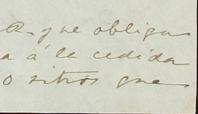 que obliga
a á la cedida
o sitios que